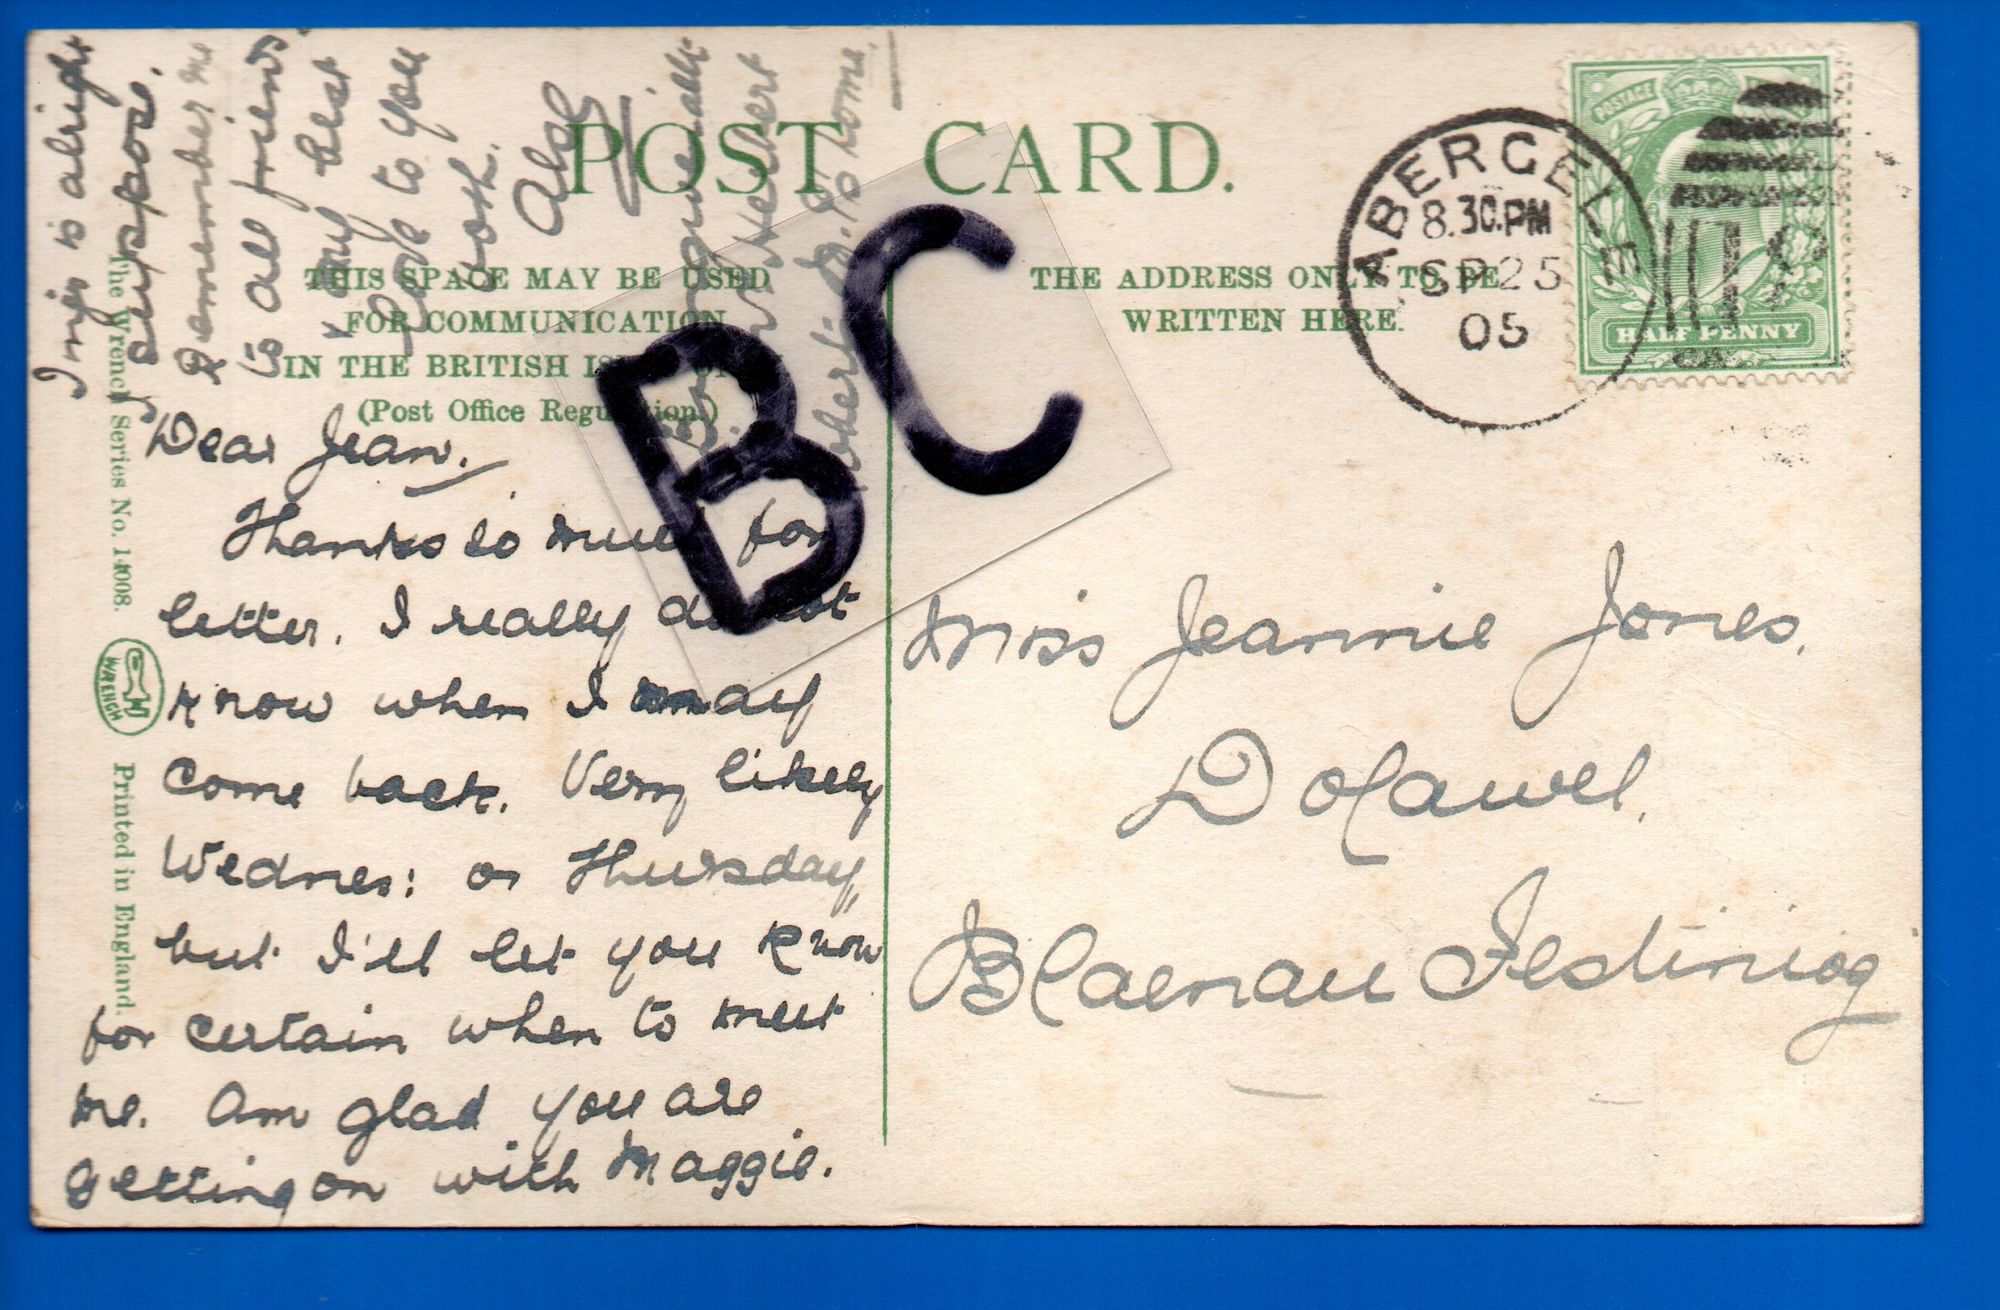 POST CARD.
THIS SPACE MAY BE USED
FOR COMMUNICATION
IN THE BRITISH
(Post Office
THE ADDRESS ONLY TO BE
WRITTEN HERE.
ABERGELE
8.30.PM
SP 25
05
POSTAGE
HALF PENNY
BC
The Wrench Series No. 14008.
WRENCH
Printed in England.
Dear Jean.
Thanks so much for
letter. I really do not
know when I may
come back. Very likely
Wednes: or Thursday,
but I'll let you know
for certain when to meet
me. Am glad you are
getting on with Maggie.
is alright
I suppose.
Remember me
to all friends
& my best
love to you
both.
Miss Jeannie Jones.
Dolawel.
Blaenau Festiniog